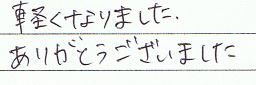 軽くなりました.
ありがとうございました